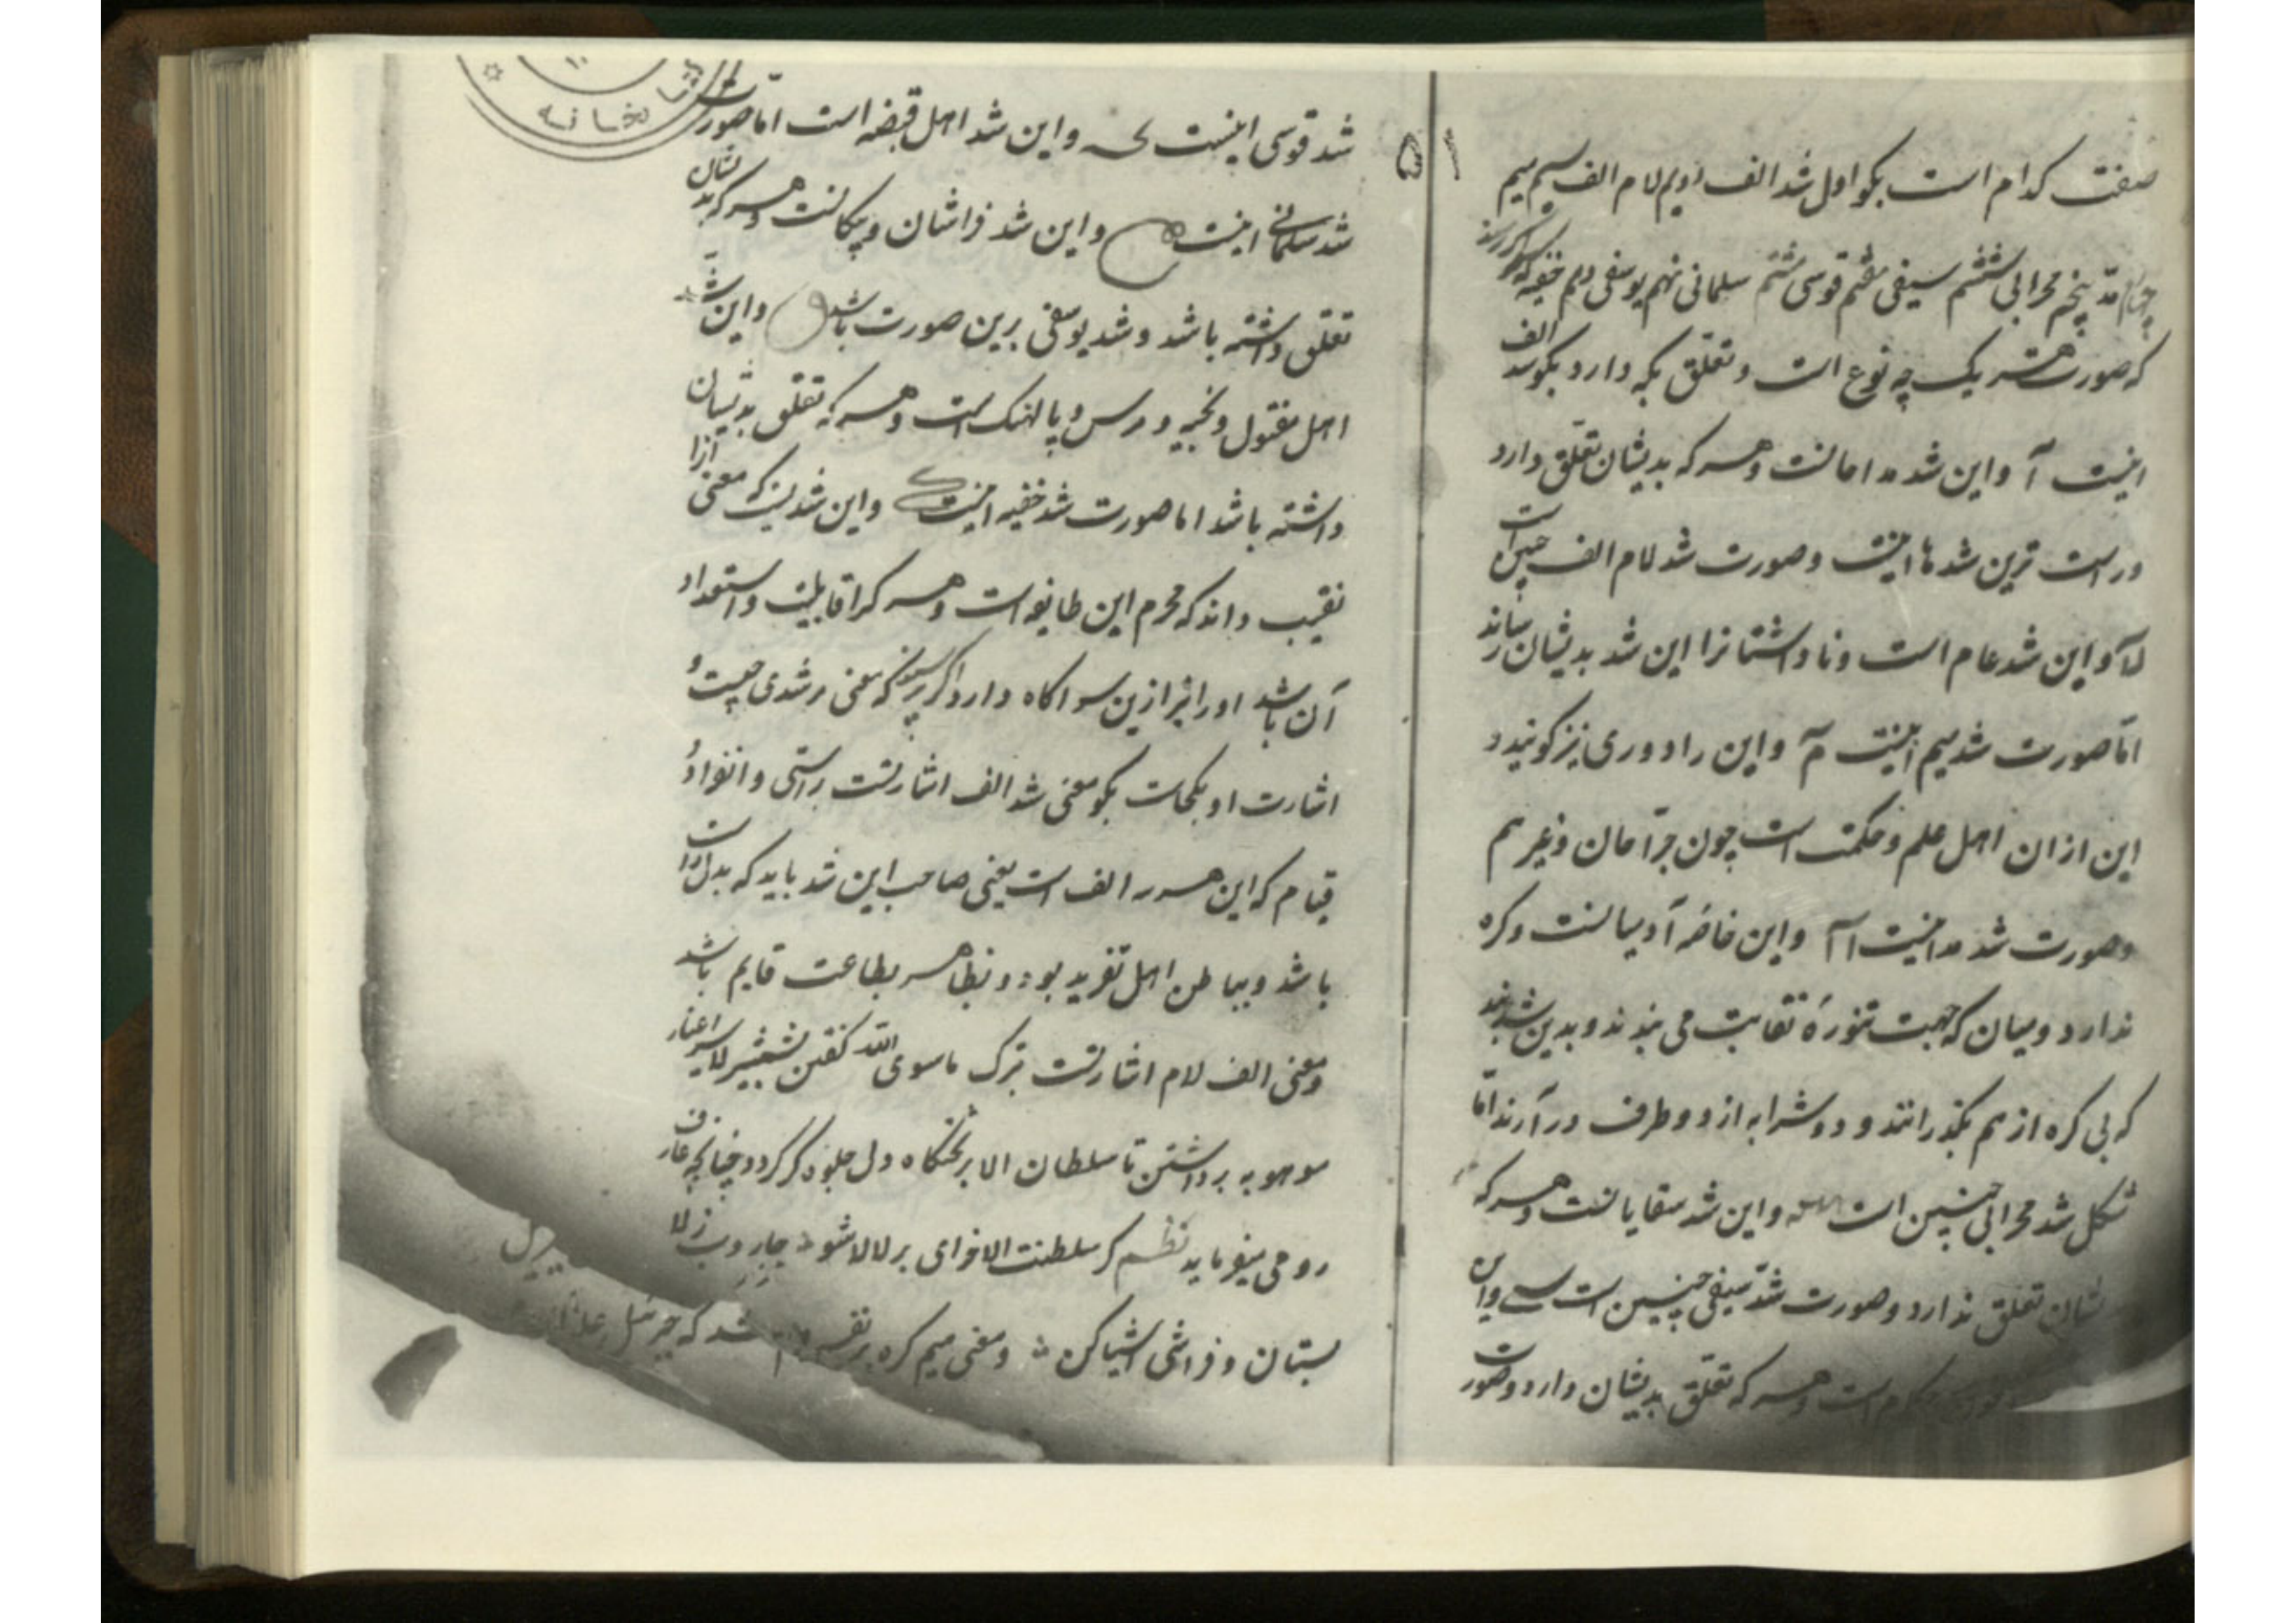 صفت کدام است بکو اول شد الف دویم لام الف سیم میم
چهارم مد پنجم محرابی ششم سیفی هفتم قوسی هشتم سلمانی نهم یوسفی دهم خفیه اکر پرسند
که صورت هر یک چه نوع است و تعلق بکه دارد بکو شد الف
اینست آ واین شد مداحانست وهر که بدیشان تعلق دارد
وراست ترین شدها اینست وصورت شد لام الف چنین است
لآ واین شد عام است ونا داشتانرا این شد بدیشان رساند
اما صورت شد میم اینست مٓ واین را دوری نیز کویند و
این ازان اهل علم وحکمت است چون جراحان وغیر هم
وصورت شد مد اینست آآ واین خاصه آدمیانست وکره
ندارد ومیان که جهت تنوره نقابت می بندند وبدین شد بندند
که بی کره از هم بکذرانند و دو شرابه از دو طرف در آرند اما
شکل شد محرابی چنین است واین شد سقایانست وهر که
بدیشان تعلق ندارد وصورت شد سیفی چنین است واین
است وهر که تعلق بدیشان دارد وصورت
۵۱
شد قوسی اینست واین شد اهل قبضه است اما صورت
شد سلمانی اینست واین شد فراشان وپیکانست وهر که بدیشان
تعلق داشته باشد وشد یوسفی برین صورت باشد واین شد
اهل مفتول و و پالهنک است وهر که تعلق بدیشان
داشته باشد اما صورت شد خفیه اینست واین شدیست که معنی آنرا
نقیب داند که محرم این طایفه است وهر کرا قابلیت واستعداد
آن باشد اورا نیز ازین سر اکاه دارد اکر پرسند که معنی هر شدی چیست و
اشارت او بکجاست بکو معنی شد الف اشارتست براستی وانفراد و
قیام که این هر سه در الف است یعنی صاحب این شد باید که بدل راست
باشد وبباطن اهل تفرید بود وبظاهر بطاعت قایم باشد
ومعنی الف لام اشارتست بترک ماسوی الله کفتن بشمشیر لا سر اغیار
موهومه برداشتن تا سلطان الا بر تختکاه دل جلوه کر کردد چنانچه عارف
رومی میفرماید نظم کر سلطنت الا خوای بر لا لا شو جاروب ز لا
بستان و فراشی اشیا کن ومعنی میم کره بر نفس شد که جبرئیل